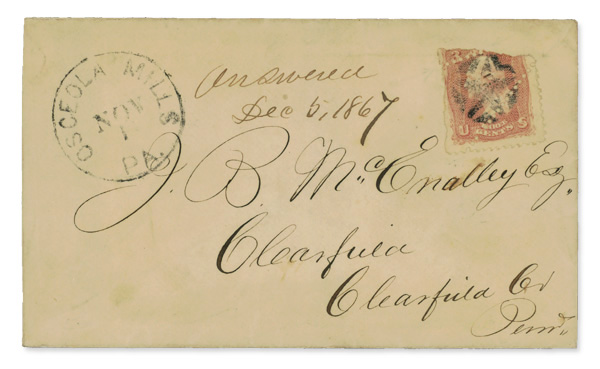 OSCEOLA MILLS
NOV
1
PA.
Answered
Dec 5, 1867
U S
CENTS
J. B. McEnalley Esq.
Clearfield
Clearfield Co
Penn.